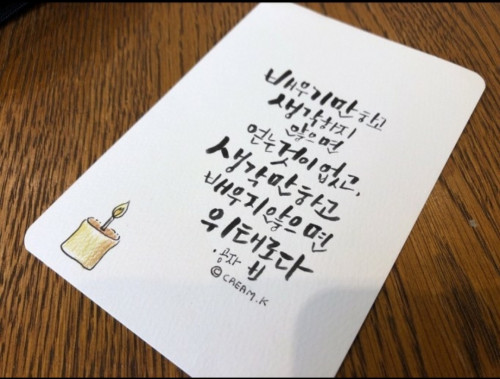 배우기만 하고
생각하지
않으면
얻는 것이 없고,
생각만 하고
배우지 않으면
위태롭다
. 공자
©CREAM.K